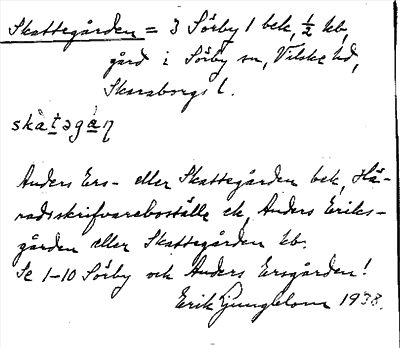 Skattegården = 3 Sörby 1 bek, ½ kb,
gård i Sörby sn, Vilske hd,
Skaraborgs l.
skàtəgàɳ
Anders Ers- eller Skattegården bek, Hä-
radsskrifvareboställe ek, Anders Eriks-
gården eller Skattegården kb.
Se 1-10 Sörby och Anders Ersgården!
Erik Ljungblom 1938.